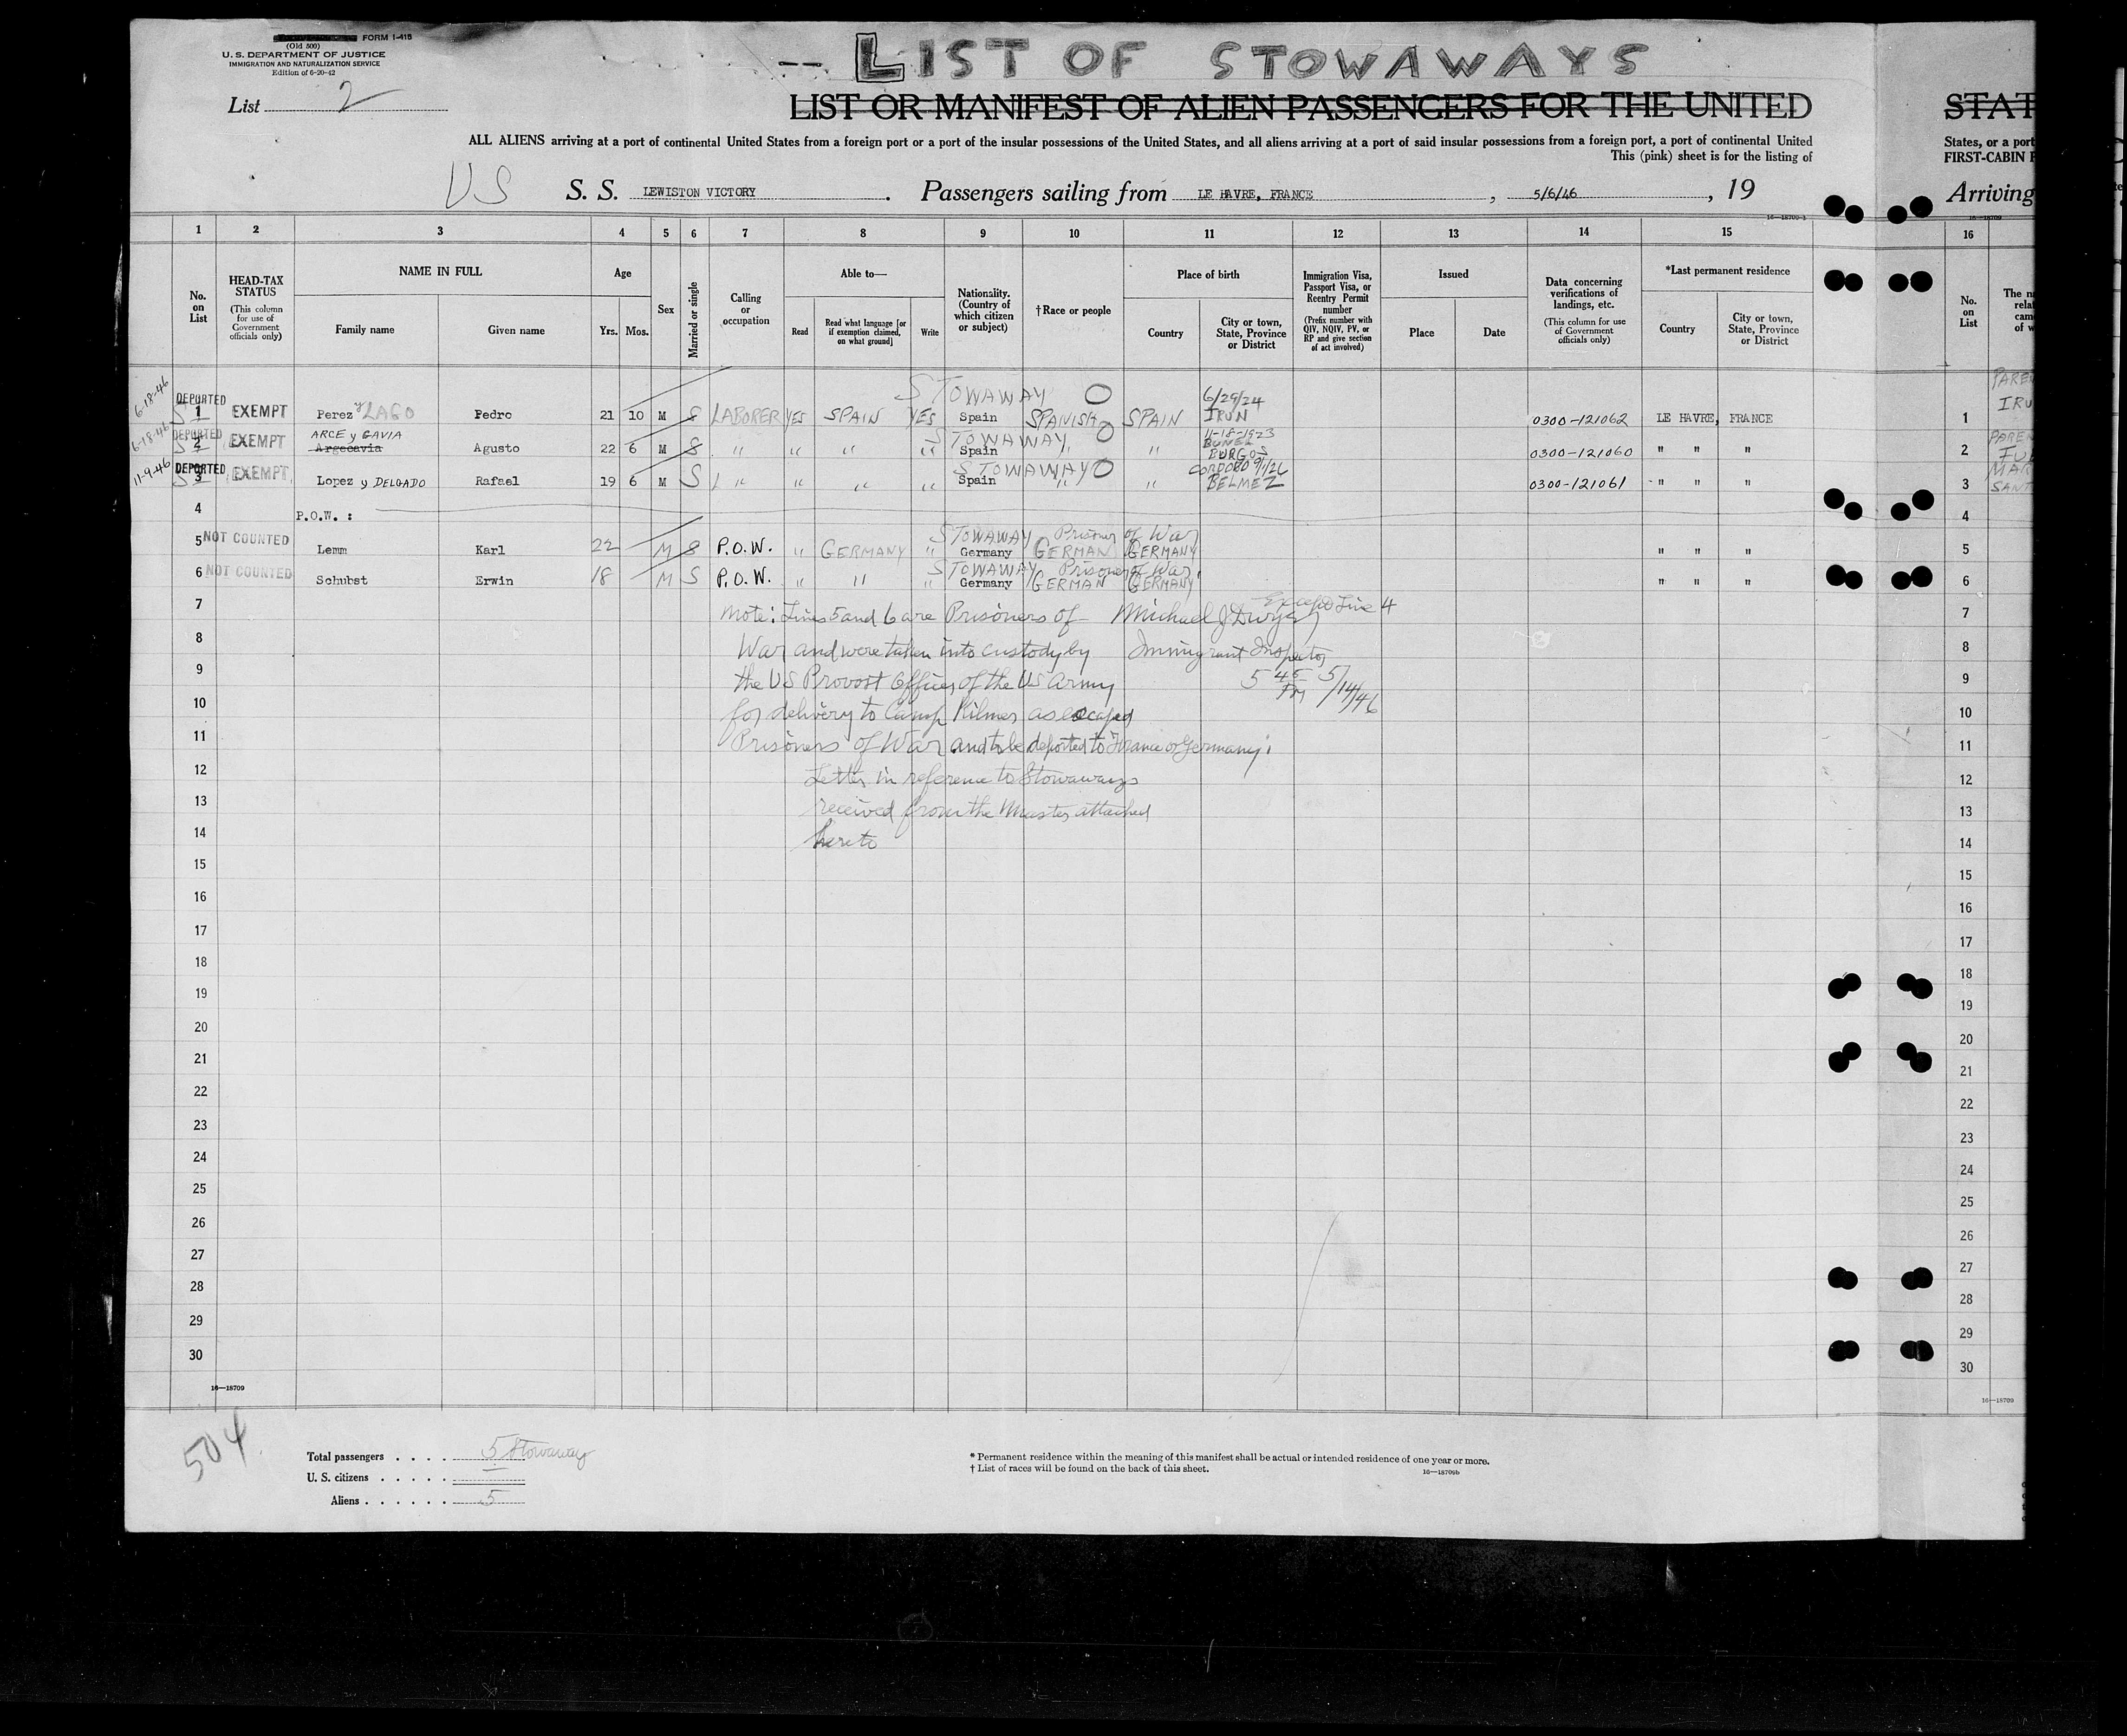 FORM I-415
(Old 500)
U. S. DEPARTMENT OF JUSTICE
IMMIGRATION AND NATURALIZATION SERVICE
Edition of 6-20-42
-- LIST OF STOWAWAYS
List 2
LIST OR MANIFEST OF ALIEN PASSENGERS FOR THE UNITED STAT
ALL ALIENS arriving at a port of continental United States from a foreign port or a port of the insular possessions of the United States, and all aliens arriving at a port of said insular possessions from a foreign port, a port of continental United
States, or a port
This (pink) sheet is for the listing of
FIRST-CABIN P
US S. S. LEWISTON VICTORY . Passengers sailing from LE HAVRE, FRANCE , 5/6/46 , 19
Arriving
16—18709-1
16—18709
1 2 3 4 5 6 7 8 9 10 11 12 13 14 15 16
No. on List
HEAD-TAX STATUS
(This column for use of Government officials only)
NAME IN FULL
Family name Given name
Age
Yrs. Mos.
Sex
Married or single
Calling or occupation
Able to—
Read
Read what language [or if exemption claimed, on what ground]
Write
Nationality. (Country of which citizen or subject)
†Race or people
Place of birth
Country
City or town, State, Province or District
Immigration Visa, Passport Visa, or Reentry Permit number
(Prefix number with QIV, NQIV, PV, or RP and give section of act involved)
Issued
Place Date
Data concerning verifications of landings, etc.
(This column for use of Government officials only)
*Last permanent residence
Country
City or town, State, Province or District
No. on List
The n
rela
cam
of w
STOWAWAY 6/29/24 PAREN
6-18-46 DEPORTED 1 EXEMPT Perez y LAGO Pedro 21 10 M S LABORER YES SPAIN YES Spain SPANISH SPAIN IRUN 0300-121062 LE HAVRE, FRANCE 1 IRU
ARCE y GAVIA STOWAWAY 11-18-1923
6-18-46 DEPORTED 2 EXEMPT Argecavia Agusto 22 6 M S " " " " Spain " " BURGOS 0300-121060 " " " 2 PAREN
STOWAWAY CORDOBO 9/1/26
11-9-46 DEPORTED 3 EXEMPT Lopez y DELGADO Rafael 19 6 M S " " " " Spain " " BELMEZ 0300-121061 " " " 3 SANT
4 P.O.W. : 4
STOWAWAY Prisoner of War
5 NOT COUNTED Lemm Karl 22 M S P.O.W. " GERMANY " Germany GERMAN GERMANY " " " 5
STOWAWAY Prisoner of War
6 NOT COUNTED Schubst Erwin 18 M S P.O.W. " " " Germany GERMAN GERMANY " " " 6
Except Line 4
7 Note: Lines 5 and 6 are Prisoners of Michael J Dwyer 7
8 War and were taken into custody by Immigrant Inspector 8
9 the US Provost Officer of the US Army 5 45 PM 5/14/46 9
10 for delivery to Camp Kilmer as escaped 10
11 Prisoners of War and to be deported to France or Germany. 11
12 Letter in reference to Stowaways 12
13 received from the Master attached 13
14 hereto 14
15 15
16 16
17 17
18 18
19 19
20 20
21 21
22 22
23 23
24 24
25 25
26 26
27 27
28 28
29 29
30 30
16—18709
16—18709
504
Total passengers . . . . 5 Stowaways
U. S. citizens . . . . .
Aliens . . . . . . 5
* Permanent residence within the meaning of this manifest shall be actual or intended residence of one year or more.
† List of races will be found on the back of this sheet.
16—18709b